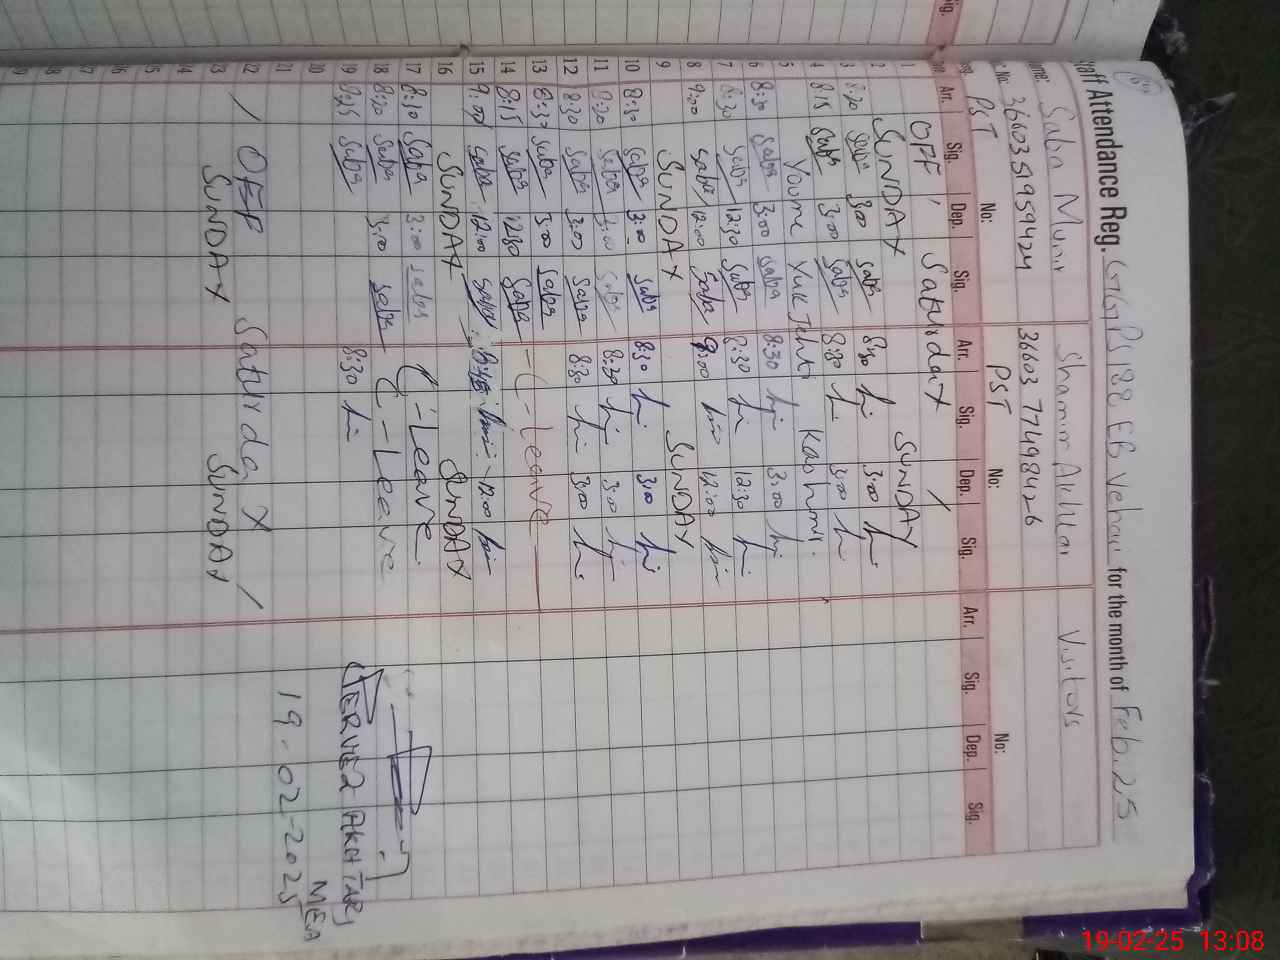 Staff Attendance Reg. GGPS 188 EB Vehari for the month of Feb. 25
Name: Saba Munir Shamim Akhtar Visitors
3660351959424 36603 77498426
PST No: PST No: No:
Arr. Sig. Dep. Sig. Arr. Sig. Dep. Sig. Arr. Sig. Dep. Sig.
1 OFF, Saturday
2 SUNDAY SUNDAY
3 8:20 Saba 3:00 Saba 8:30 3:00
4 8:15 Saba 3:00 Saba 8:30 3:00
5 Youme Yukjehti Kashmir.
6 8:30 Saba 3:00 Saba 8:30 3:00
7 8:30 Saba 12:30 Saba 8:30 12:30
8 9:00 Saba 12:00 Saba 9:00 12:00
9 SUNDAY SUNDAY
10 8:30 Saba 3:00 Saba 8:30 3:00
11 8:20 Saba 3:00 Saba 8:30 3:00
12 8:30 Saba 3:00 Saba 8:30 3:00
13 8:35 Saba 3:00 Saba - C - Leave
14 8:15 Saba 12:30 Saba
15 9:00 Saba 12:00 Saba 12:00
16 SUNDAY SUNDAY
17 8:10 Saba 3:00 Saba C - Leave
18 8:20 Saba 3:00 Saba C - Leave
19 8:25 Saba 8:30
(PERVEZ AKHTAR)
20
MEA
21
19-02-2025
22 OFF Saturday
23 SUNDAY SUNDAY
14
15
16
17
18
19
19-02-25 13:08